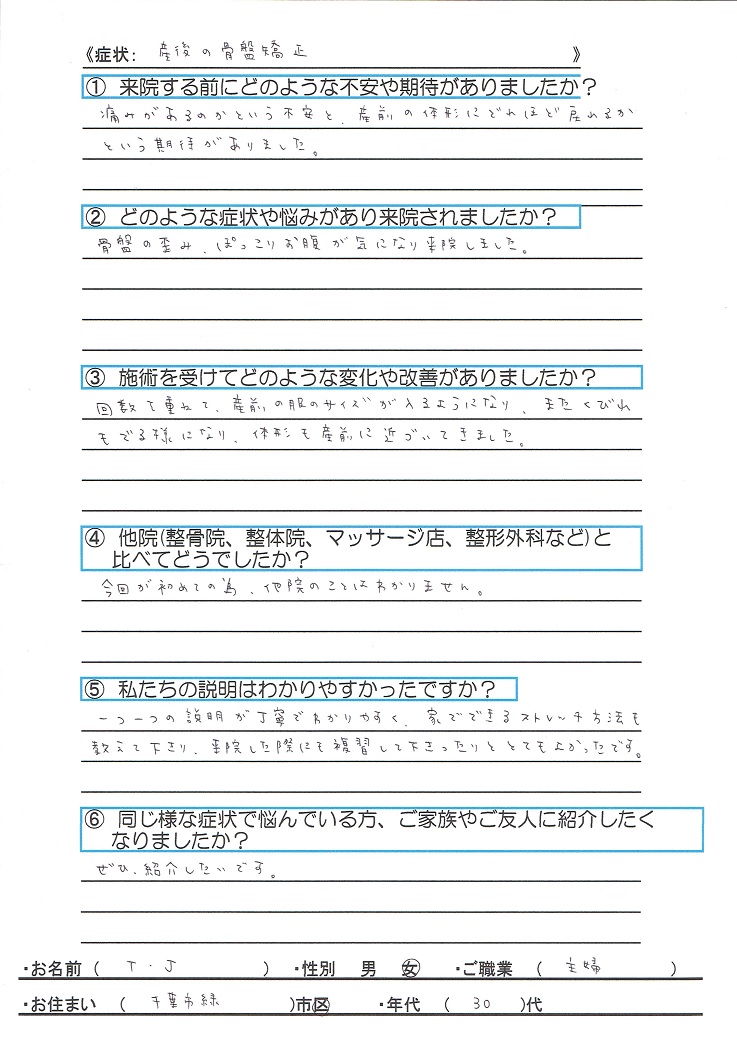 《症状: 産後の骨盤矯正 》
① 来院する前にどのような不安や期待がありましたか？
痛みがあるのかという不安と、産前の体形にどれほど戻れるか
という期待がありました。
② どのような症状や悩みがあり来院されましたか？
骨盤の歪み、ぽっこりお腹が気になり来院しました。
③ 施術を受けてどのような変化や改善がありましたか？
回数を重ねて、産前の服のサイズが入るようになり、またくびれ
もでる様になり、体形も産前に近づいてきました。
④ 他院(整骨院、整体院、マッサージ店、整形外科など)と
比べてどうでしたか？
今回が初めての為、他院のことはわかりません。
⑤ 私たちの説明はわかりやすかったですか？
一つ一つの説明が丁寧でわかりやすく、家でできるストレッチ方法も
教えて下さり、来院した際にも複習して下さったりととてもよかったです。
⑥ 同じ様な症状で悩んでいる方、ご家族やご友人に紹介したく
なりましたか？
ぜひ、紹介したいです。
・お名前 ( T・J ) ・性別 男 女 ・ご職業 ( 主婦 )
・お住まい ( 千葉市緑 )市区 ・年代 ( 30 )代